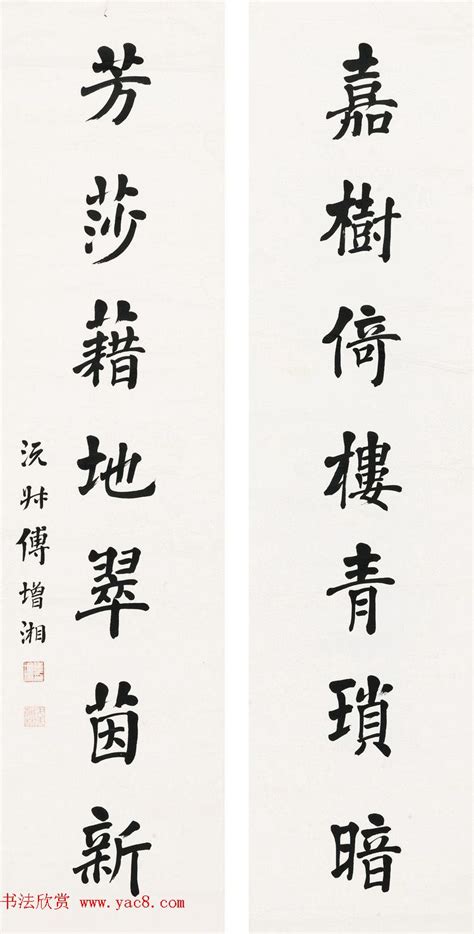 嘉樹倚樓青瑣暗
芳莎藉地翠茵新
沅叔傅增湘
书法欣赏 www.yac8.com